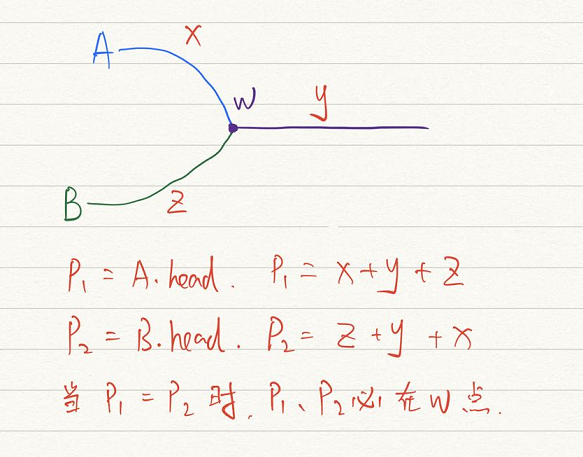 x
A
W
y
B
z
P₁ = A.head. P₁ = x+y+z
P₂ = B.head. P₂ = z+y+x
当 P₁ = P₂ 时, P₁、P₂必在W点.